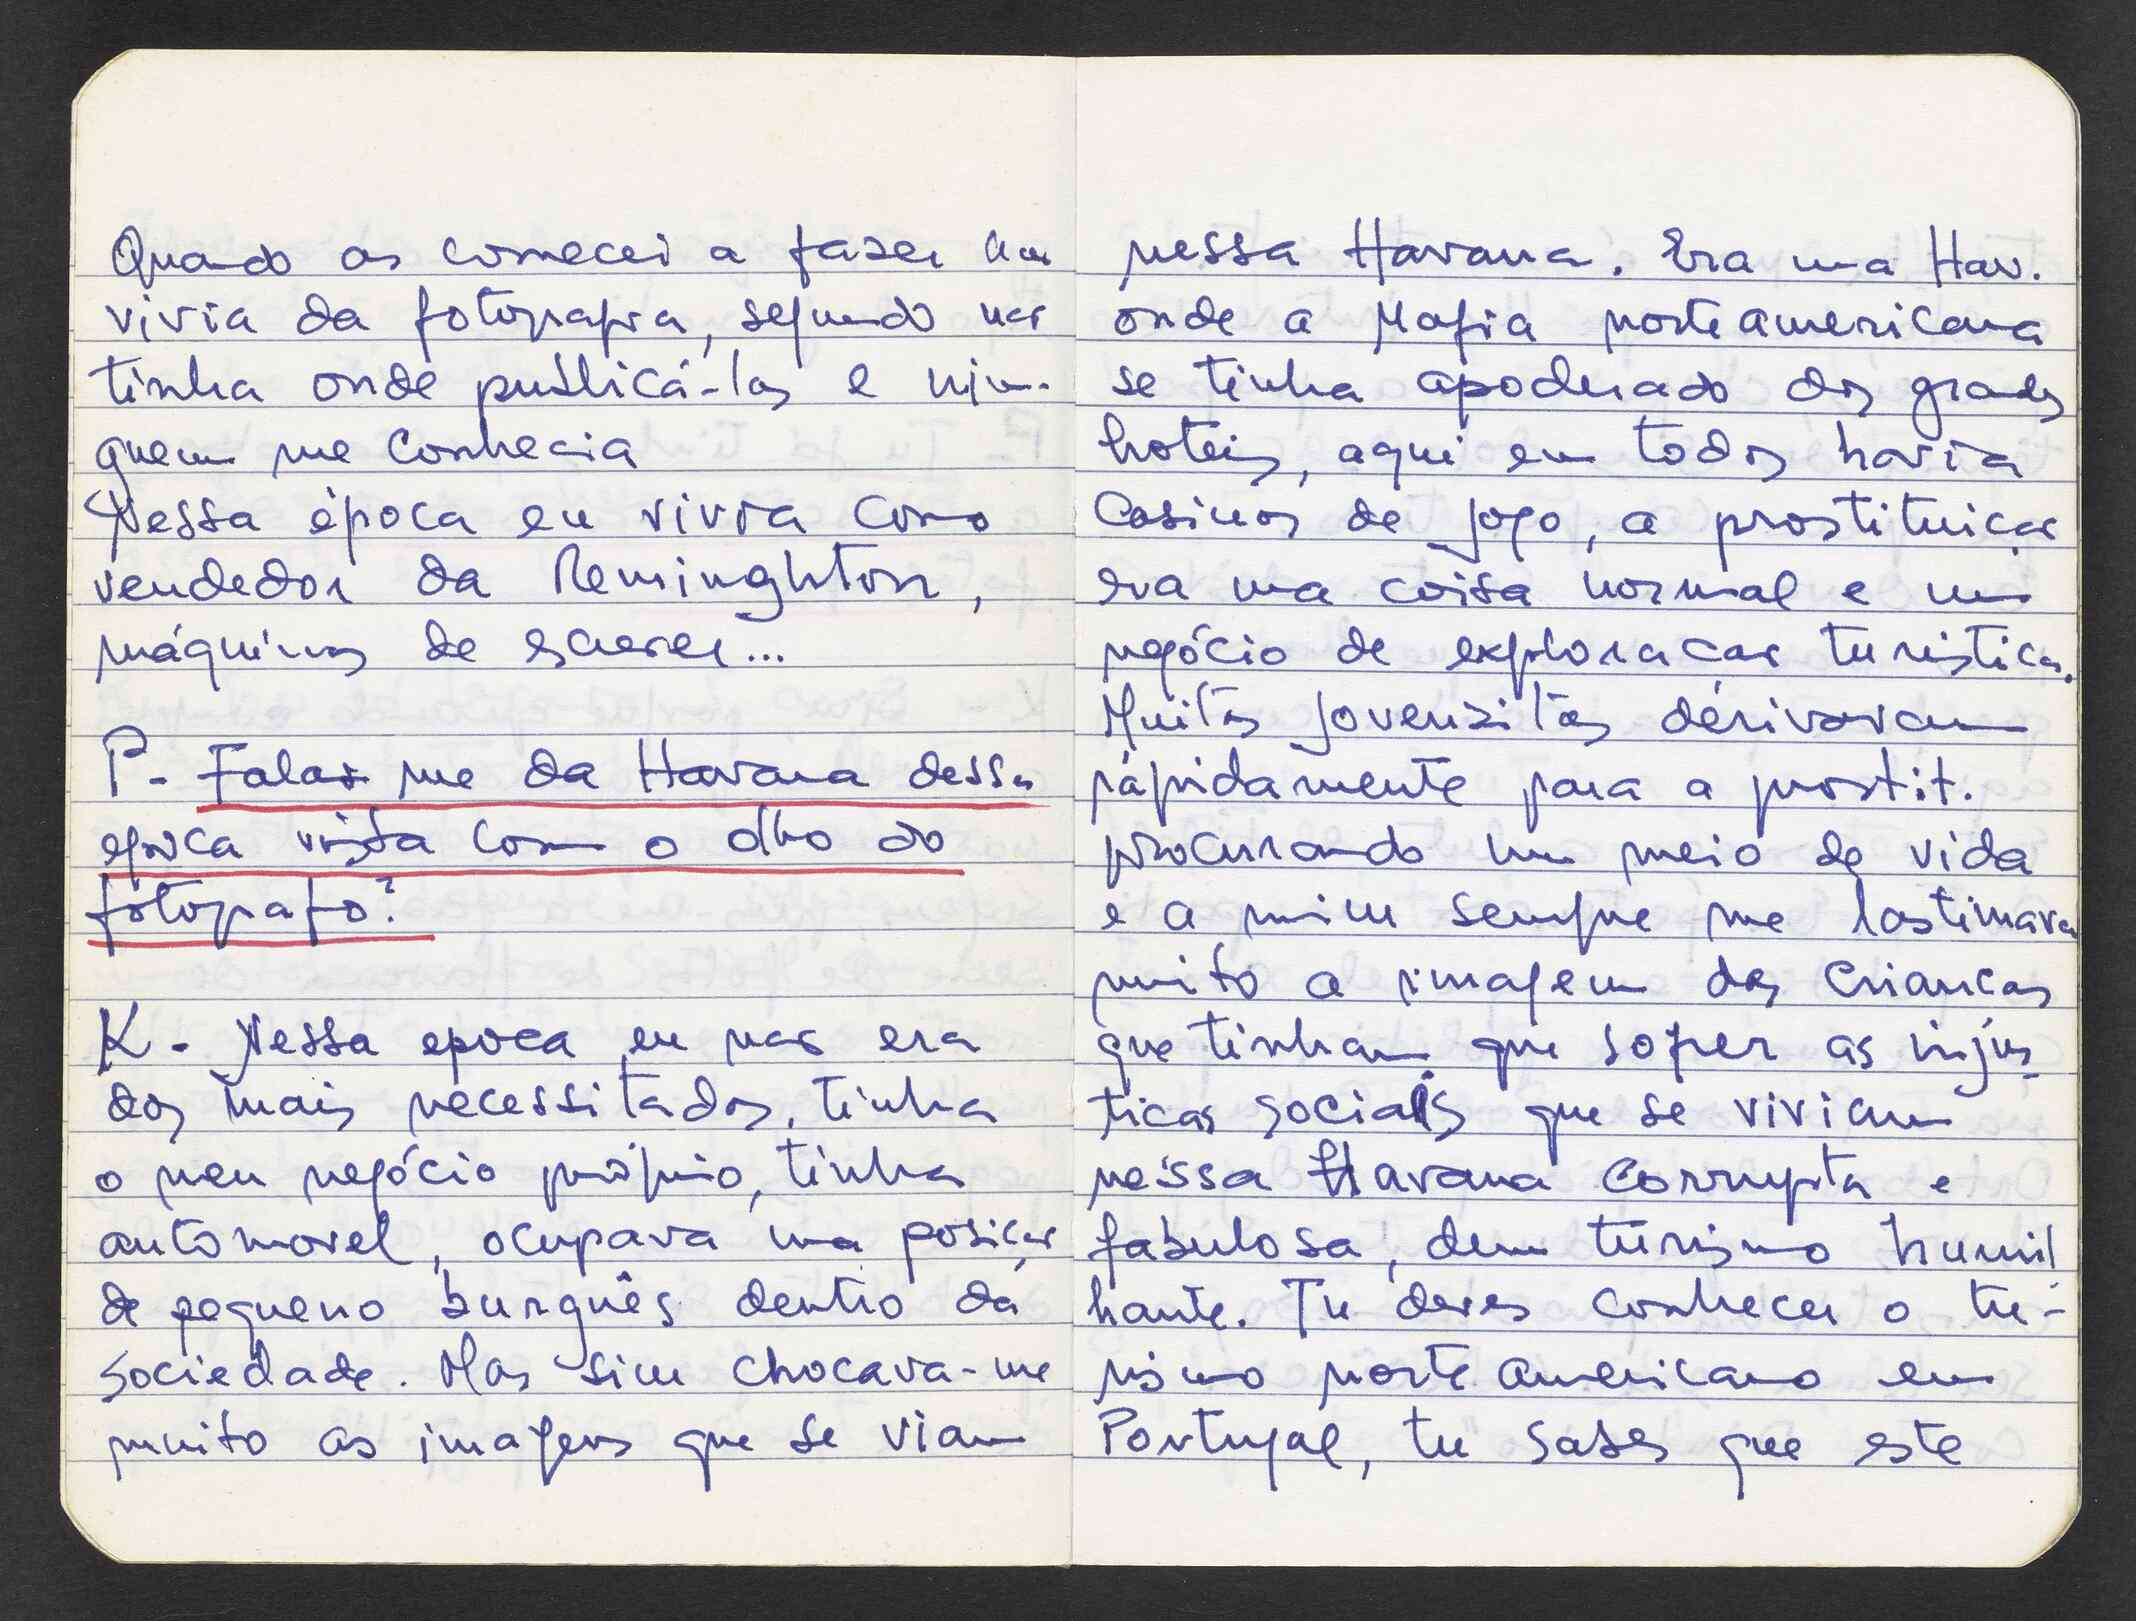 Quando as comecei a fazer nem
vivia da fotografia, segundo nao
tinha onde publicá-las e nin-
guem me conhecia
Nessa época eu vivia como
vendedor da Reminghton,
máquinas de escrever...
P- Falas me da Havana dessa
epoca vista com o olho do
fotografo?
K- Nessa epoca eu nao era
dos mais necessitados, tinha
o meu negócio próprio, tinha
automovel, ocupava uma posiçao
de pequeno burguês dentro da
sociedade. Mas sim chocava-me
muito as imagens que se viam
nessa Havana. Era uma Hav.
onde a Mafia norteamericana
se tinha apoderado dos grandes
hoteis, aqui em todos havia
Casinos de jogo, a prostituiçao
era uma coisa normal e um
negócio de exploracao turistica.
Muitas jovenzitas derivavam
rápidamente para a prostit.
procurando um meio de vida
e a mim sempre me lastimava
muito a imagem das criancas
que tinham que sofrer as injus-
ticas sociais que se viviam
nessa Havana corrupta e
fabulosa, dum turismo humil
hante. Tu deves conhecer o tu-
rismo norte americano em
Portugal, tu sabes que este